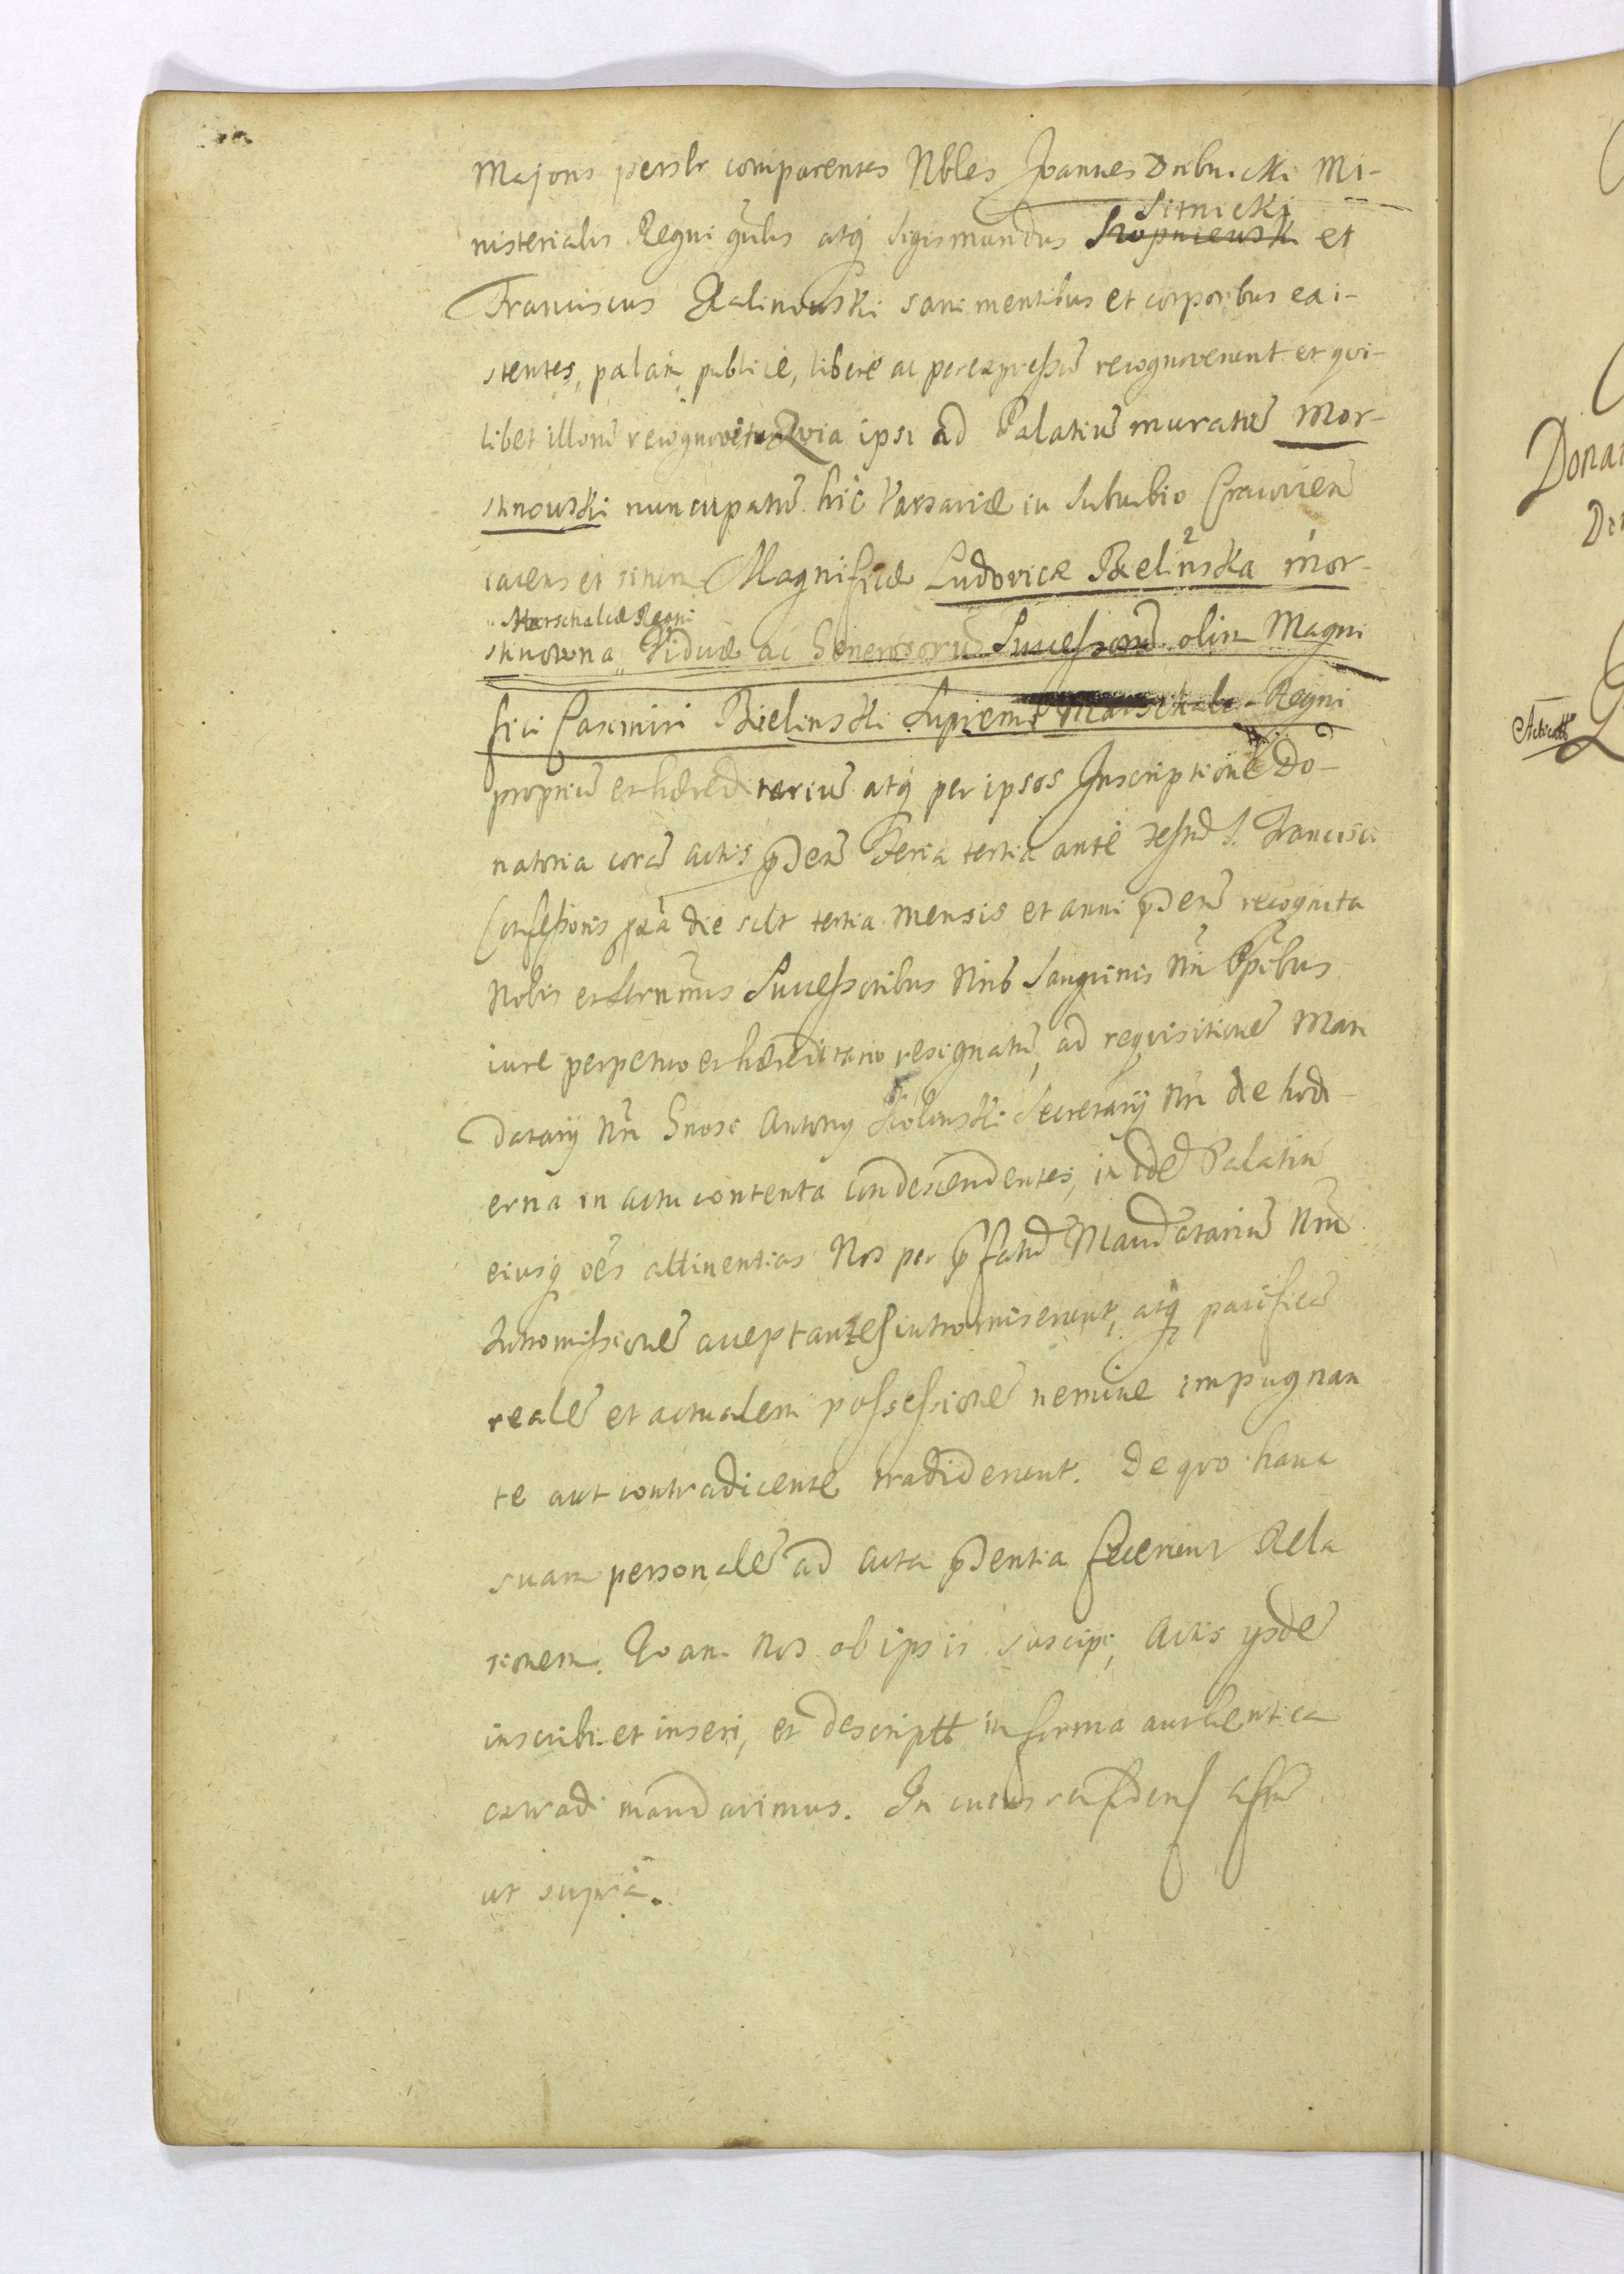 Majoris persltr comparentes Nbles Joannes Dubnicki Mi-
nisterialis Regni gńlis atq̃ Sigismundus Sitnicki et
Franciscus Kalinowski sani mentibus et corporibus exi-
stentes, palàm, publicè, liberè ac per expressũ recognoverunt et qvi-
libet illorũ recognovit Qvia ipsi ad Palatiũ muratũ Mor-
sknowski nuncupatũ hîc Varsaviæ in Suburbio Cracovieñ
iacens et situm Magnificæ Ludovicæ Bielinska Mor-
Marschalcæ Regni
sknowna Viduæ ac Generosorũ Successorũ olim Magni
fici Casimiri Bielinski Supremi Marschalci Regni
propriũ et hæreditariũ atq̃ per ipsos Inscriptione Do-
natoria corã actis p̃deñ Feria tertia ante festũ S. Francisci
Confessoris die sclt tertia mensis et anni p̃deñ recognita
Nobis et Successoribus Nris Sangvinis Nri
iure perpetuo et hæreditario resignatũ, ad reqvisitionẽ Man
datarij Nri Gnosi Antonij Secretarij Nri de hodi-
erna in actu contenta condescendentes, in idẽ Palatiũ
eiusq̃ oẽs attinentias Nos per p̃fatũ Mandatariũ Nrũ
Intromissionẽ acceptantes intromiserunt, atq̃ pacificã
realẽ et actualem possessionẽ nemine impugnan
te aut contradicente tradiderunt. De qvo hanc
suam personalẽ ad acta p̃dentia fecerunt Rela
tionem. Qvam Nos ab ipsis suscipi, Actis ysdẽ
inscribi et inseri, et descriptt in forma authentica
extradi mandavimus. In cuius rei fidem
ut supra.
Donat
Acticatt